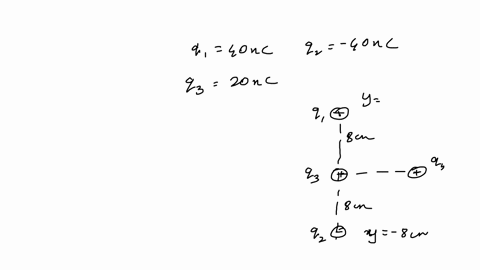 q₁ = 40nC q₂ = -40nC
q₃ = 20nC
q₁ + y=
8cm
q₃ + + q₃
8cm
q₂ - y = -8cm